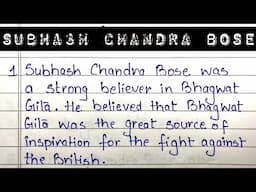 SUBHASH CHANDRA BOSE
1. Subhash Chandra Bose was
a strong believer in Bhagwat
Gita. He believed that Bhagwat
Gita was the great source of
inspiration for the fight against
the British.